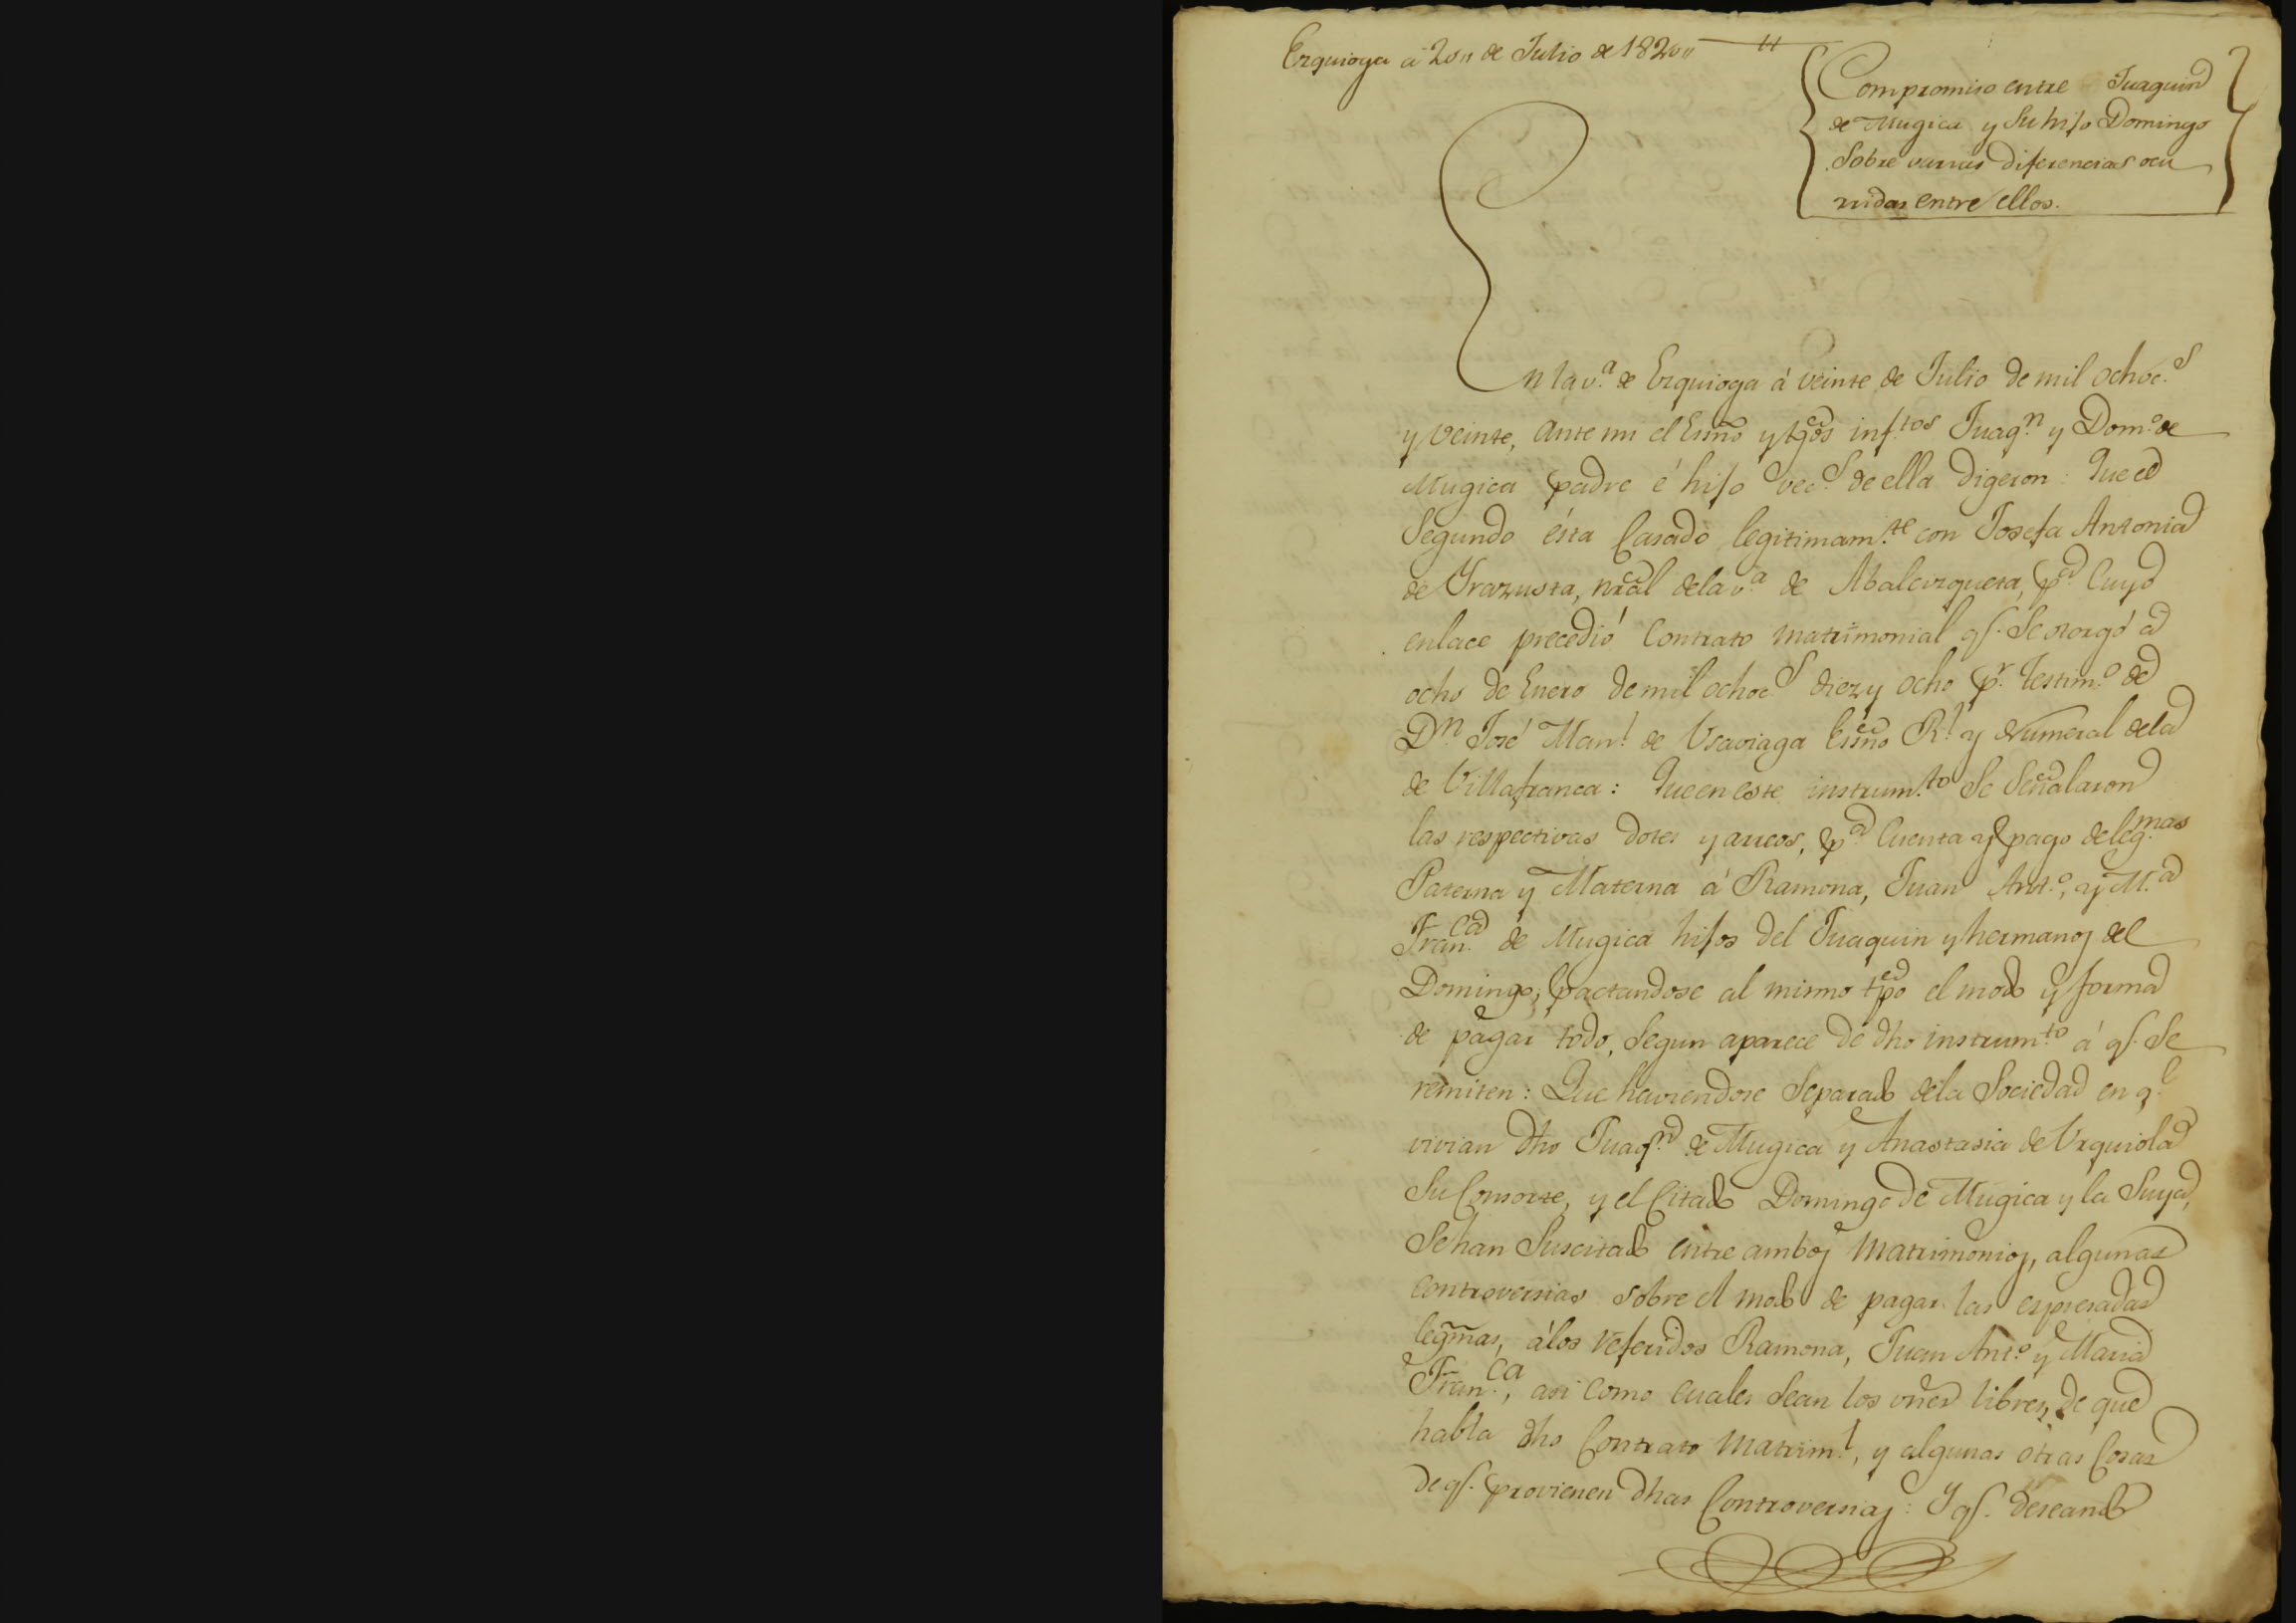 Ezquioga a 20,, de Julio de 1820,,
Compromiso entre Juaquin
de Mugica y Su hijo Domingo
Sobre varias diferencias ocu
rridas entre ellos.
En la v.ª de Ezquioga á veinte de Julio de mil ochoc.s
y veinte, ante mi el Essño y tgos inf.tos Juaq.n y Dom.º de
Mugica padre é hijo vec.s de ella digeron: Que el
Segundo ésta Casado legitimam.te con Josefa Antonia
de Yrazusta, nral de la v.ª de Abalcizqueta, p.ª Cuyo
enlace precedió Contrato matrimonial q.e Se otorgó a
ocho de Enero de mil ochoc.s diez y ocho p.r Testim.º de
D.n José Man.l de Usaviaga Essño R.l y Numeral de la
de Villafranca: Que en este instrum.to Se Señalaron
las respectivas dotes y arreos, p.ª Cuenta y pago de leg.mas
Paterna y Materna á Ramona, Juan Ant.º, y M.ª
Fran.ca de Mugica hijos del Juaquin y hermanos del
Domingo, pactandose al mismo tpo el modo y forma
de pagar todo, Segun aparece de dho instrum.to á q.e Se
remiten: Que haviendose Separado de la Sociedad en q.e
vivian dho Juaq.n de Mugica y Anastasia de Urquiola
Su Consorte, y el Citado Domingo de Mugica y la Suya,
Se han Suscitado entre ambos Matrimonios, algunas
Controversias sobre el modo de pagar las espresadas
legmas, á los referidos Ramona, Juan Ant.º y Maria
Fran.ca, asi como cuales Sean los vnes libres, de que
habla dho Contrato Matrim.l, y algunas otras Cosas
de q.e provienen dhas Controversias: Y q.e deseando